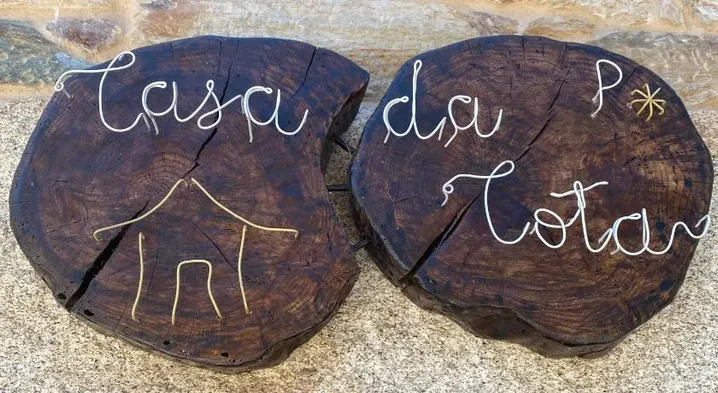 Casa da P
Cota